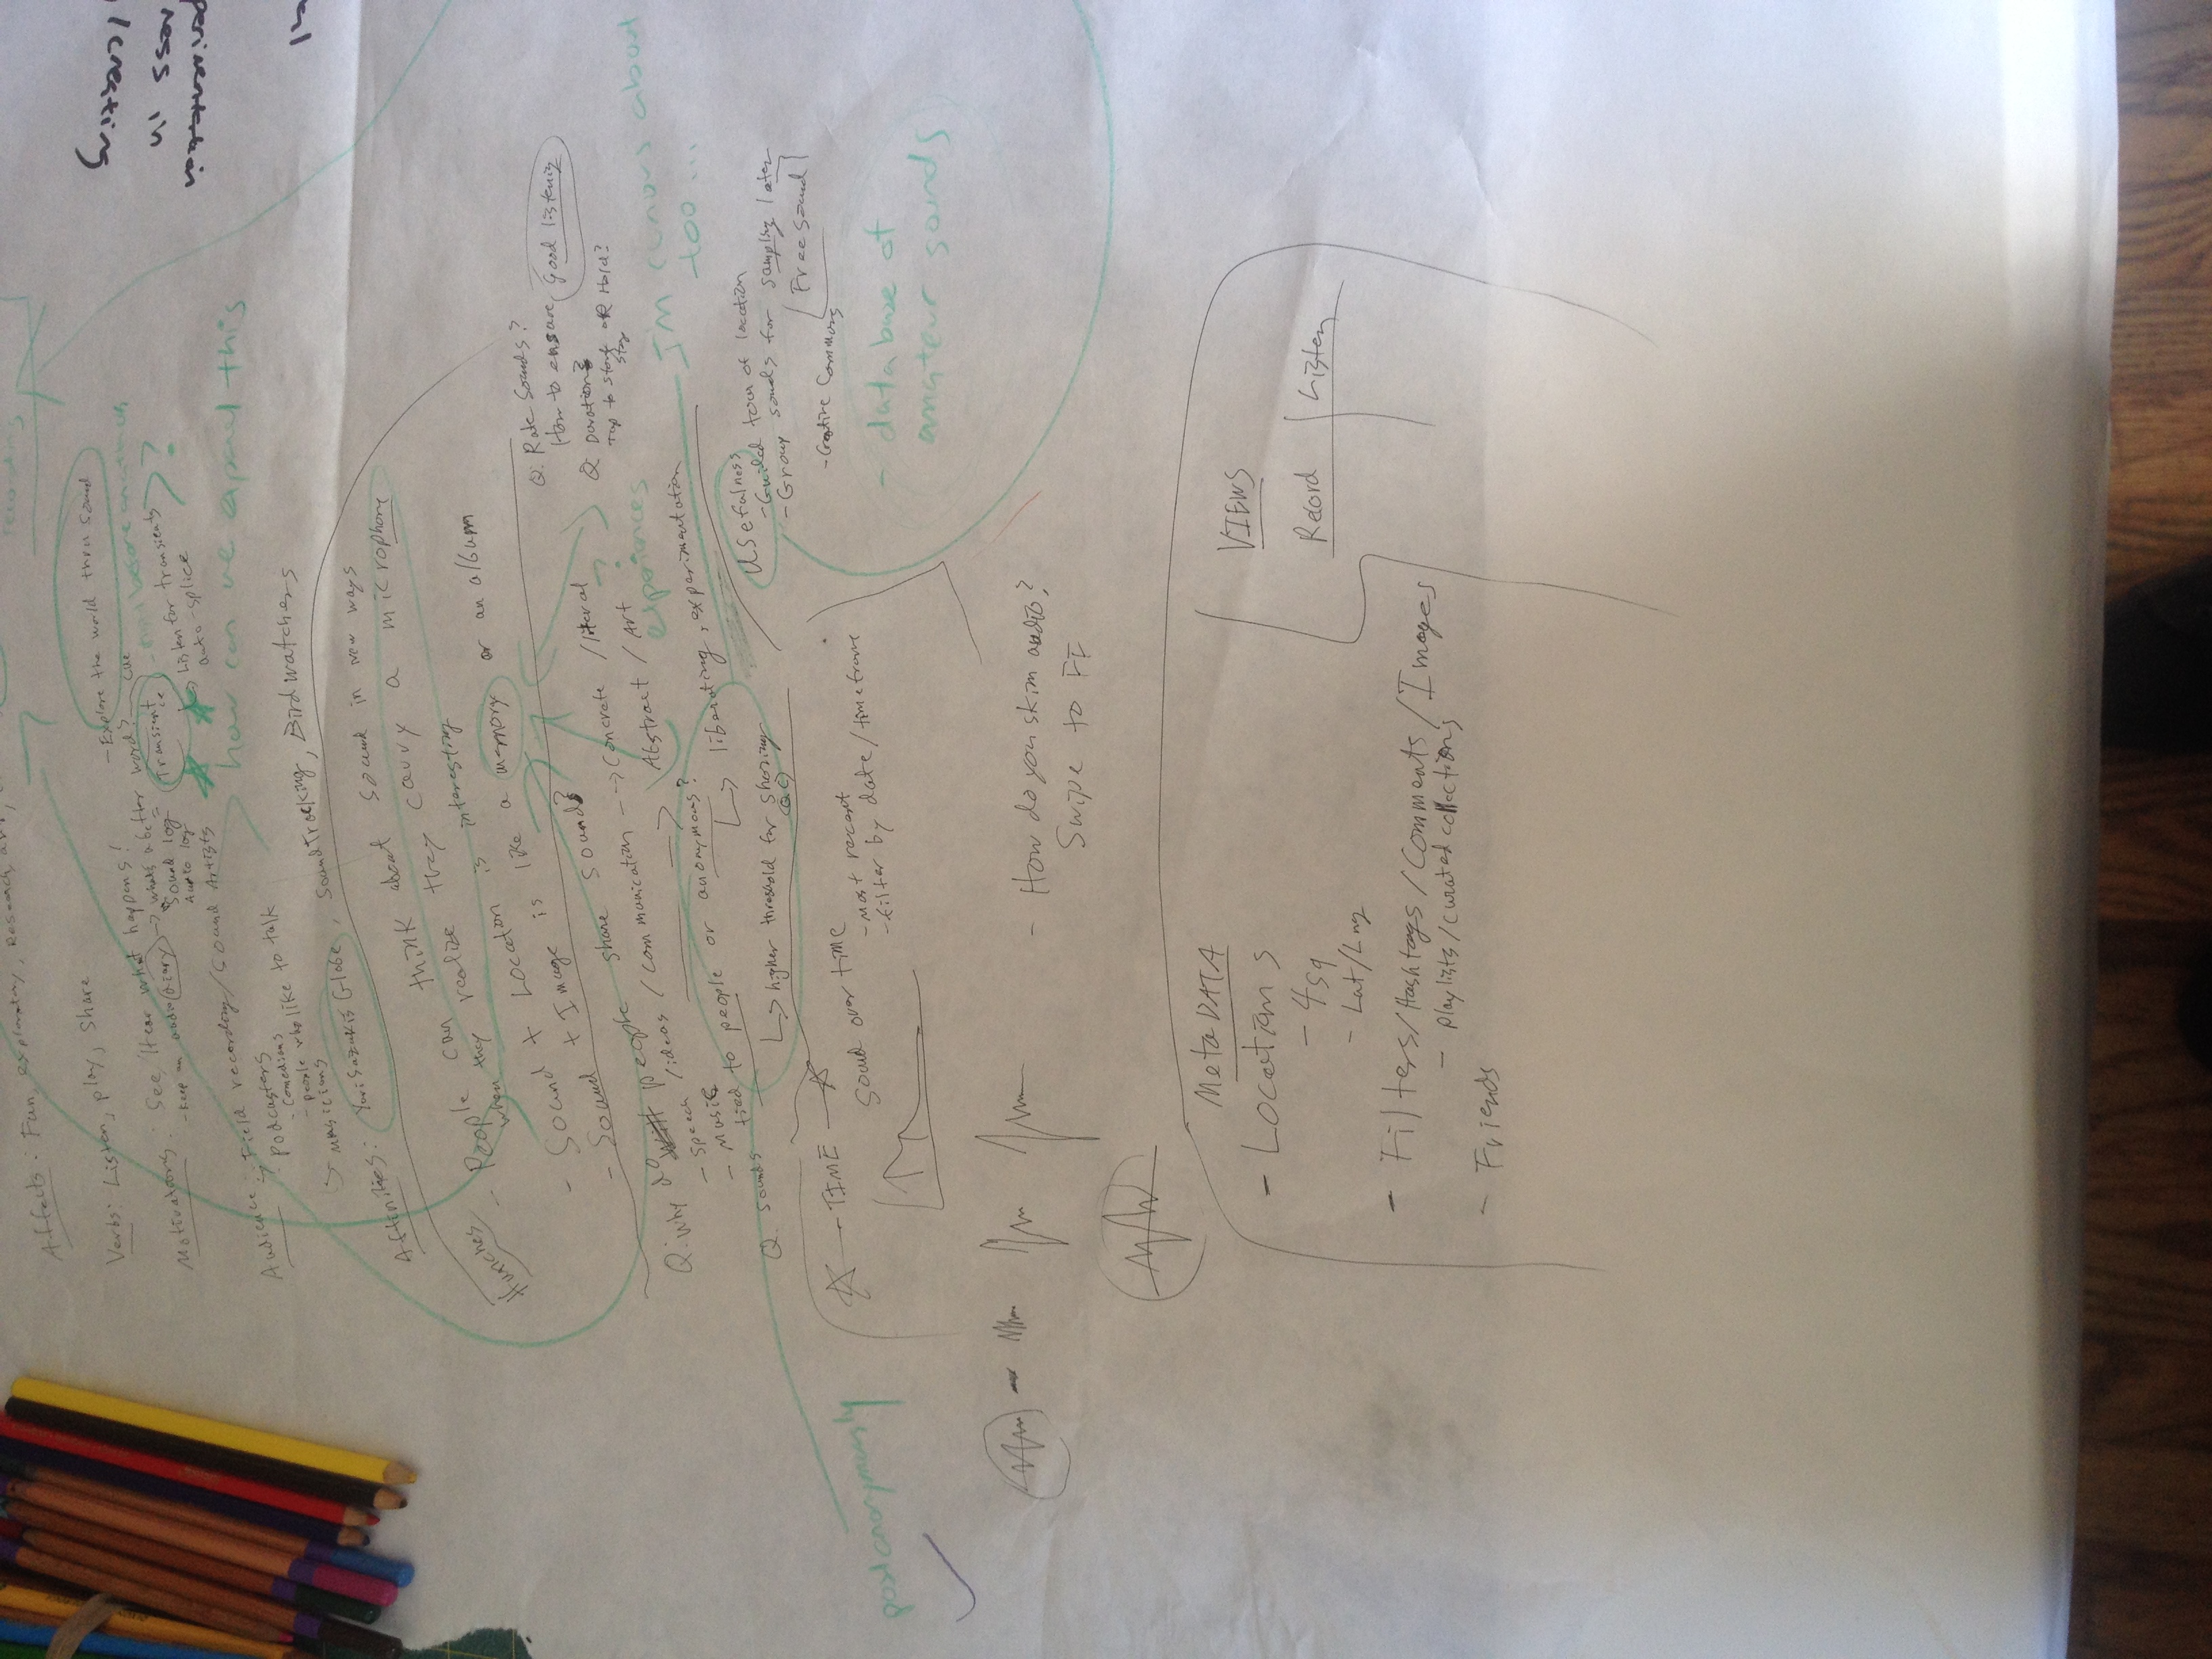 Affects: Fun, exploratory, Research, art,
recording
Verbs: Listen, play, share
- Explore the world thru sound
Motivations: See/Hear what happens!
- Keep an audio diary → whats a better word?
Sound log
Audio log
cue
Transient
→ Listen for transients
auto-splice
?
how can we expand this
Audience: Field recording/Sound Artists
- Podcasters
- Comedians
- people who like to talk
musicians
Affinities: Yuri Suzukis Globe, Soundtracking, Birdwatchers
Hunches
- People can think about sound in new ways
when they realize they carry a microphone
- Sound + Location is interesting
- Sound + Image is like a memory or an album
Q: Rate Sounds?
How to ensure good listening
Q: Duration?
Tap to start stop OR Hold?
Q: Why do will people share sounds?
- Speech /ideas /communication → Concrete /literal
- Music → Abstract / Art
? experiences
I'm curious about
too...
Q. Sounds tied to people or anonymous?
↳ liberating, experimentation
↳ higher threshold for sharing
(QC)
post anonymously
Usefulness
- Guild tour of location
- Group sounds for sampling later
Free Sound
- Creative Commons
- database of
amateur sounds
TIME
Sound over time
- most recent
- filter by date/timeframe
- How do you skim audio?
Swipe to FF
MetaDATA
- Locations
- 4sq
- Lat/Lng
- Filters/Hashtags/Comments/Images
- playlists/curated collections
- Friends
VIEWS
Record Listen
creating
ness in